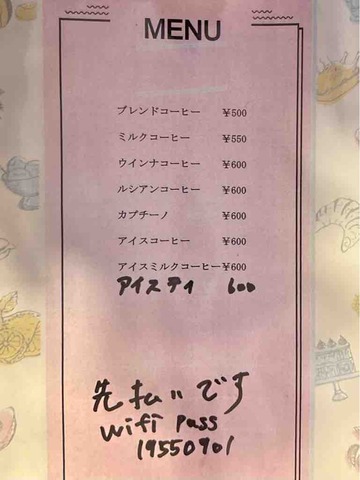 MENU
ブレンドコーヒー ¥500
ミルクコーヒー ¥550
ウインナコーヒー ¥600
ルシアンコーヒー ¥600
カプチーノ ¥600
アイスコーヒー ¥600
アイスミルクコーヒー¥600
アイスティ 600
先払いです
wifi pass
19550901